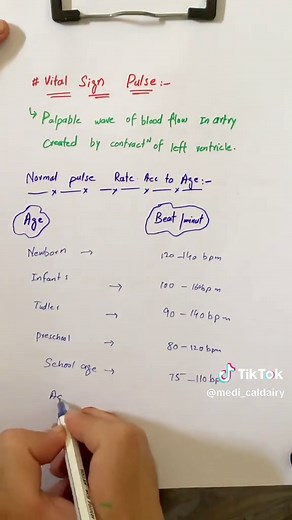 # Vital Sign Pulse:-
↳ Palpable wave of blood flow in artry
Created by contractⁿ of left ventricle.
Normal pulse Rate Acc to Age:-
Age Beat/minut
Newborn → 120-140 bpm
Infants → 100-160 bpm
Tudler → 90-140 bpm
preschool → 80-120 bpm
School age → 75-110 bp
TikTok
@medi_caldairy